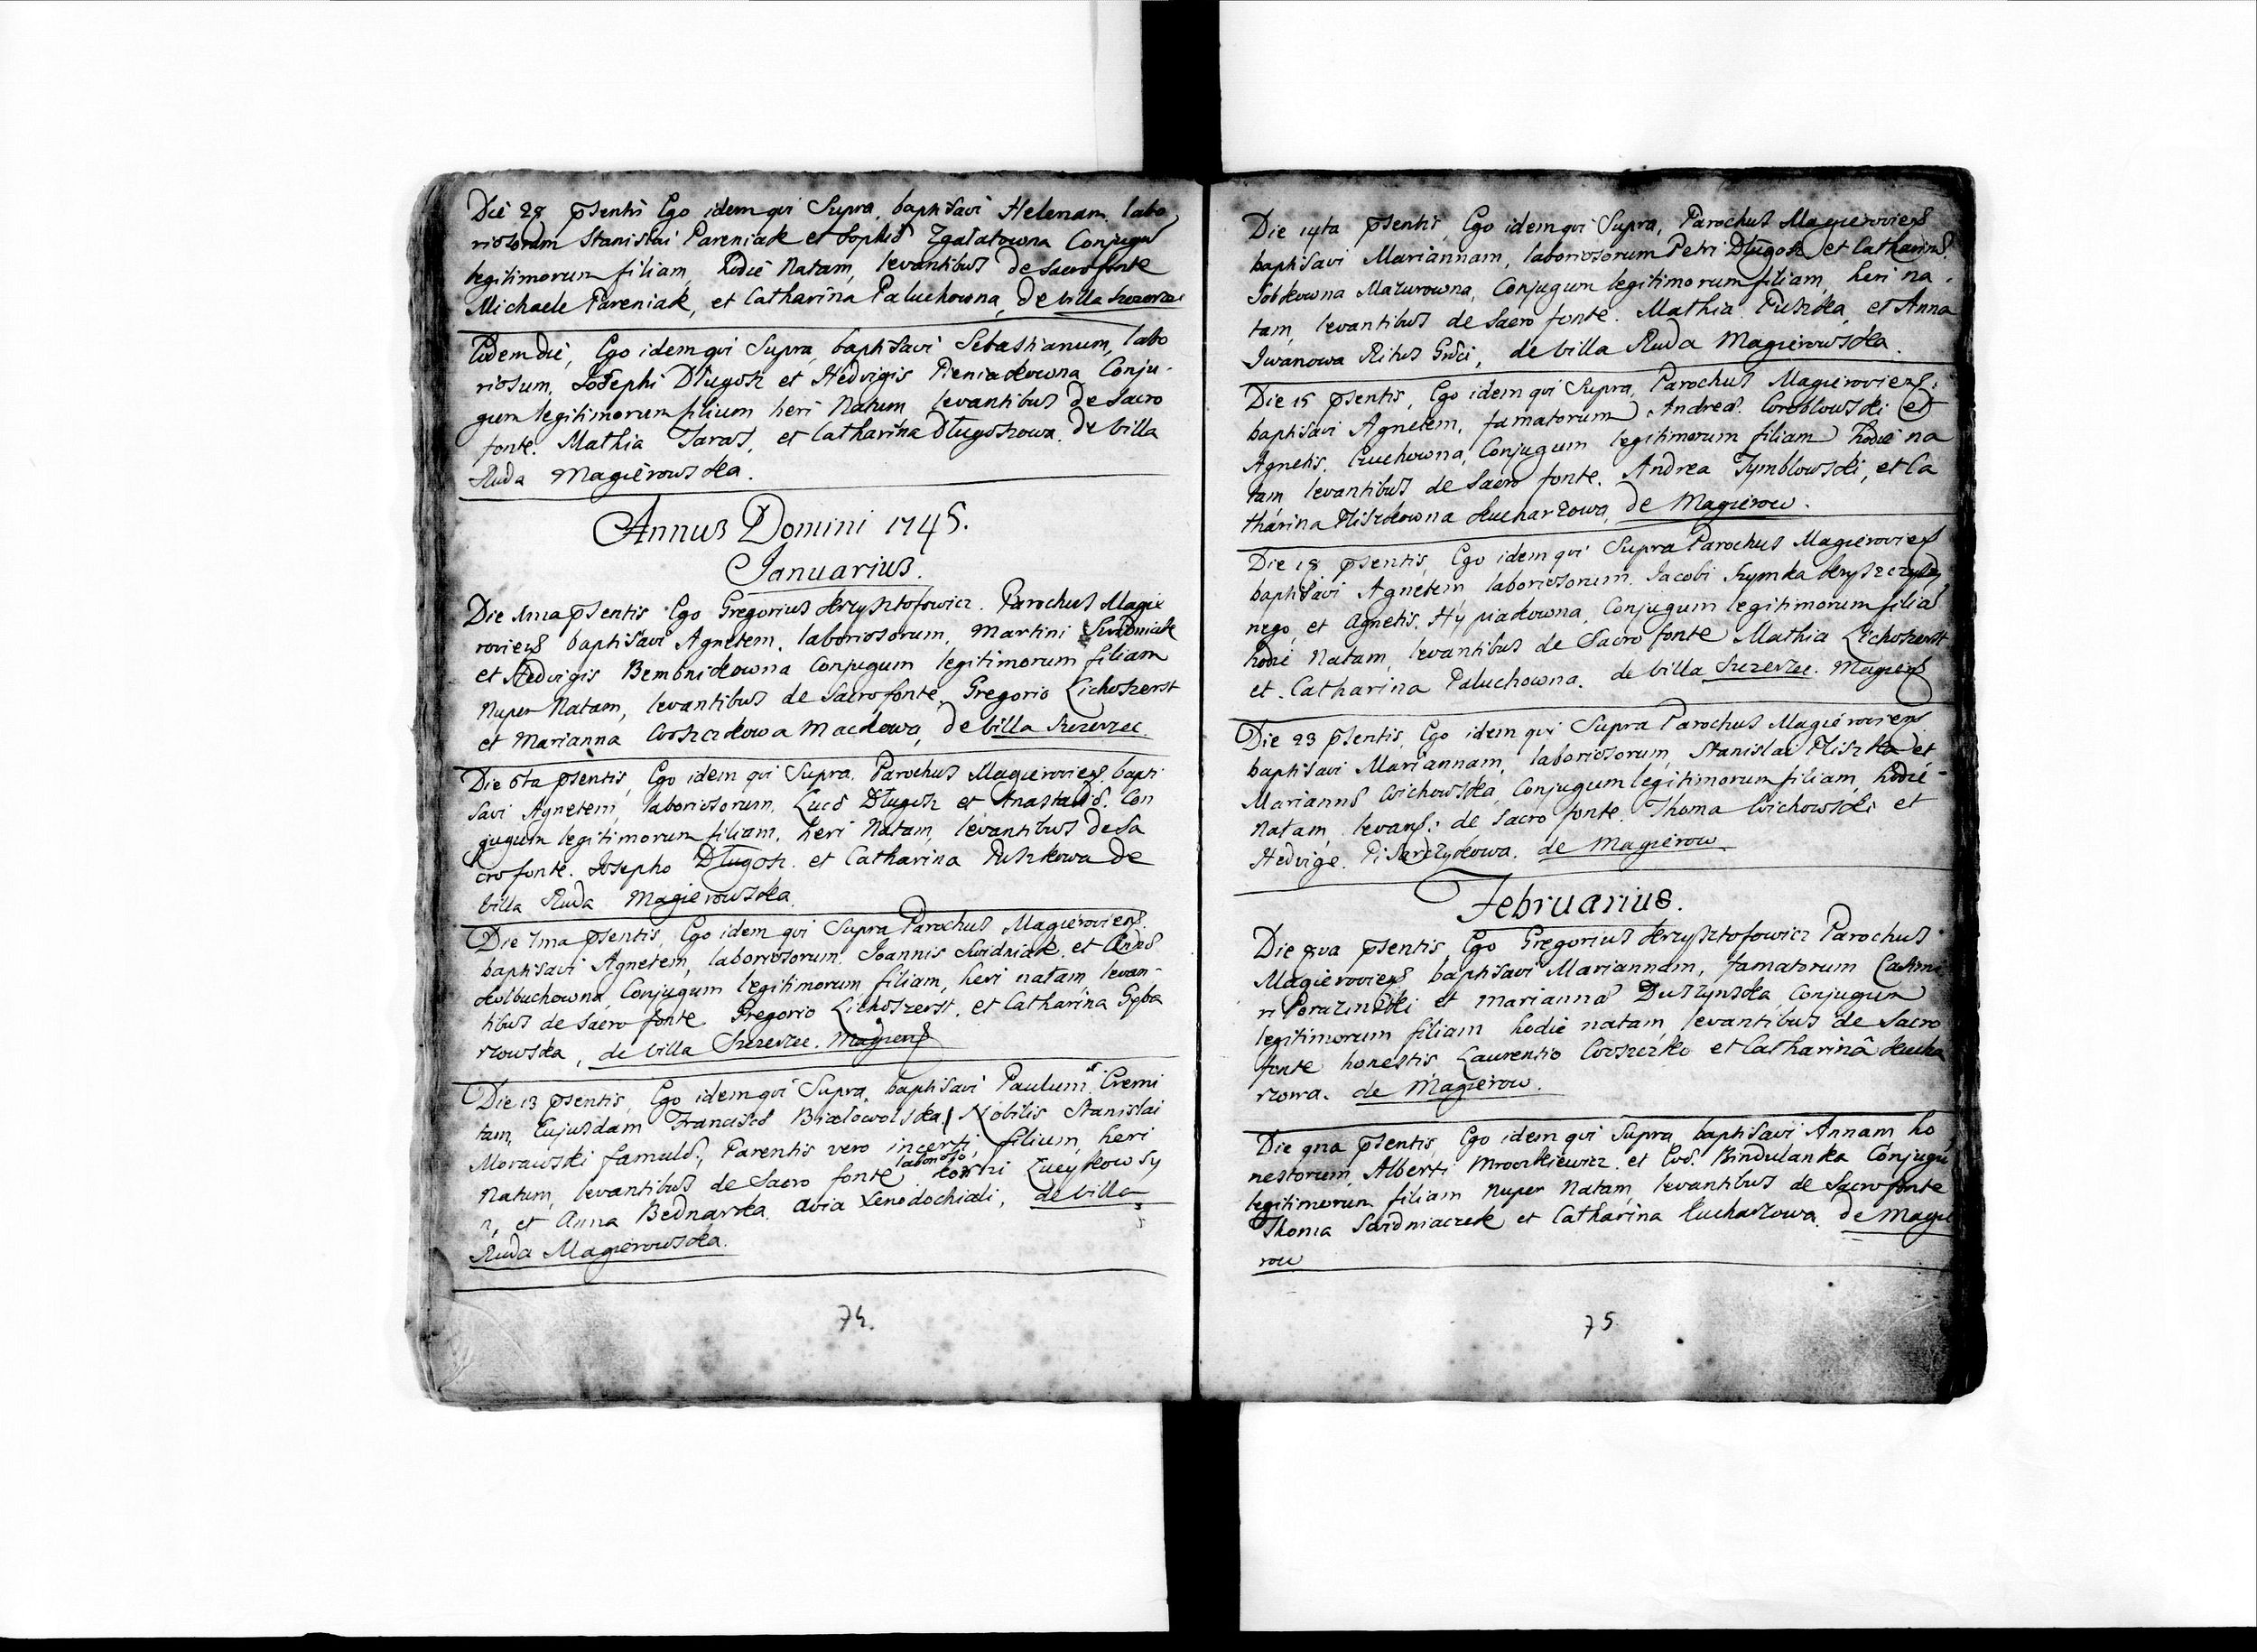 Die 28 psentis Ego idem qui Supra, baptisavi Helenam, labo
riosorum Stanislai Pareniak et Sophiæ Zgałatowna Conjugum
legitimorum filiam, hodie Natam, levantibus de Sacro fonte
Michaele Pareniak, et Catharina Paluchowna, de villa Szczerzec
Eodem die, Ego idem qui Supra, baptisavi Sebastianum, labo
riosum, Josephi Długosz et Hedvigis Pieniakowna Conju-
gum legitimorum filium heri Natum levantibus de Sacro
fonte. Mathia Taras, et Catharina Długoszowa. de villa
Ruda Magierowska.
Annus Domini 1745.
Januarius.
Die 1ma psentis Ego Gregorius Krzysztofowicz. Parochus Magie
roviens baptisavi Agnetem, laboriosorum, Martini
et Hedvigis Bembnikowna Conjugum legitimorum filiam
Nuper Natam, levantibus de Sacro fonte, Gregorio Lichoszerst
et Marianna Woszczkowa Mackowa, de villa Szczerzec
Die 6ta psentis, Ego idem qui Supra. Parochus Magieroviens. bapti
savi Agnetem, laboriosorum, Lucæ Długosz et Anastasiæ. Con
jugum legitimorum filiam, heri Natam, levantibus de Sa
cro fonte. Josepho Długosz. et Catharina Puszkowa de
villa Ruda Magierowska.
Die 7ma psentis, Ego idem qui Supra Parochus Magieroviens.
baptisavi Agnetem, laboriosorum, Joannis Swidniak, et Annæ
Kolbuchowna, Conjugum legitimorum filiam, heri natam, levan-
tibus de Sacro fonte Gregorio Lichoszerst, et Catharina Gyba
rzowska, de villa Szczerzec. Magiens
Die 13 psentis, Ego idem qui Supra, baptisavi Paulum Eremi
tam, Cujusdam Franciscæ Białowolska, Nobilis Stanislai
Morawski famulæ, Parentis vero incerti, filium, heri
Natum, levantibus de Sacro fonte laborioso,
n, et Anna Bednarska, Avia Xenodochiali, de villa
Ruda Magierowska.
74.
Die 14ta psentis, Ego idem qui Supra, Parochus Magieroviens
baptisavi Mariannam, laboriosorum Petri Długosz et Catharinæ
Sobkowna Mazurowna, Conjugum legitimorum filiam, heri na-
tam, levantibus de Sacro fonte. Mathia Puszka, et Anna
Iwanowa Ritus Græci, de villa Ruda Magierowska.
Die 15 psentis, Ego idem qui Supra, Parochus Magieroviens:
baptisavi Agnetem, famatorum Andreæ. Woroblowski et
Agnetis. Czuchowna, Conjugum legitimorum filiam hodie na
tam levantibus de Sacro fonte. Andrea Tymblowski, et Ca
tharina Pliszkowna Kucharzowa, de Magierow.
Die 18 psentis, Ego idem qui Supra Parochus Magieroviens
baptisavi Agnetem laboriosorum, Jacobi Szymka
nego, et Agnetis. Hypiakowna, Conjugum legitimorum filiã
hodie Natam, levantibus de Sacro fonte Mathia Lichoszerst
et Catharina Paluchowna. de villa Szczerzec. Magiens
Die 23 psentis, Ego idem qui Supra Parochus Magieroviens
baptisavi Mariannam, laboriosorum, Stanislai Pliszka et
Mariannæ Woichowska, Conjugum legitimorum filiam, hodie-
Natam, levans: de Sacro fonte. Thoma Woichowski et
Hedvige. Pisarczykowa. de Magierow.
Februarius.
Die 8va psentis, Ego Gregorius Krzysztofowicz Parochus
Magieroviens, baptisavi Mariannam, famatorum Casimi
ri Porazinski et Mariannæ Duszynska Conjugum
legitimorum filiam hodie natam, levantibus de Sacro
fonte honestis Laurentio Woszczko et Catharina Kucha
rzowa. de Magierow.
Die 9na psentis, Ego idem qui Supra, baptisavi Annam, ho
nestorum, Alberti Mroczkiewicz. et Evæ. Bindulanka Conjugũ
legitimorum filiam Nuper Natam, levantibus de Sacro fonte
Thoma Swidniaczek et Catharina Kucharzowa. de Magie
row
75